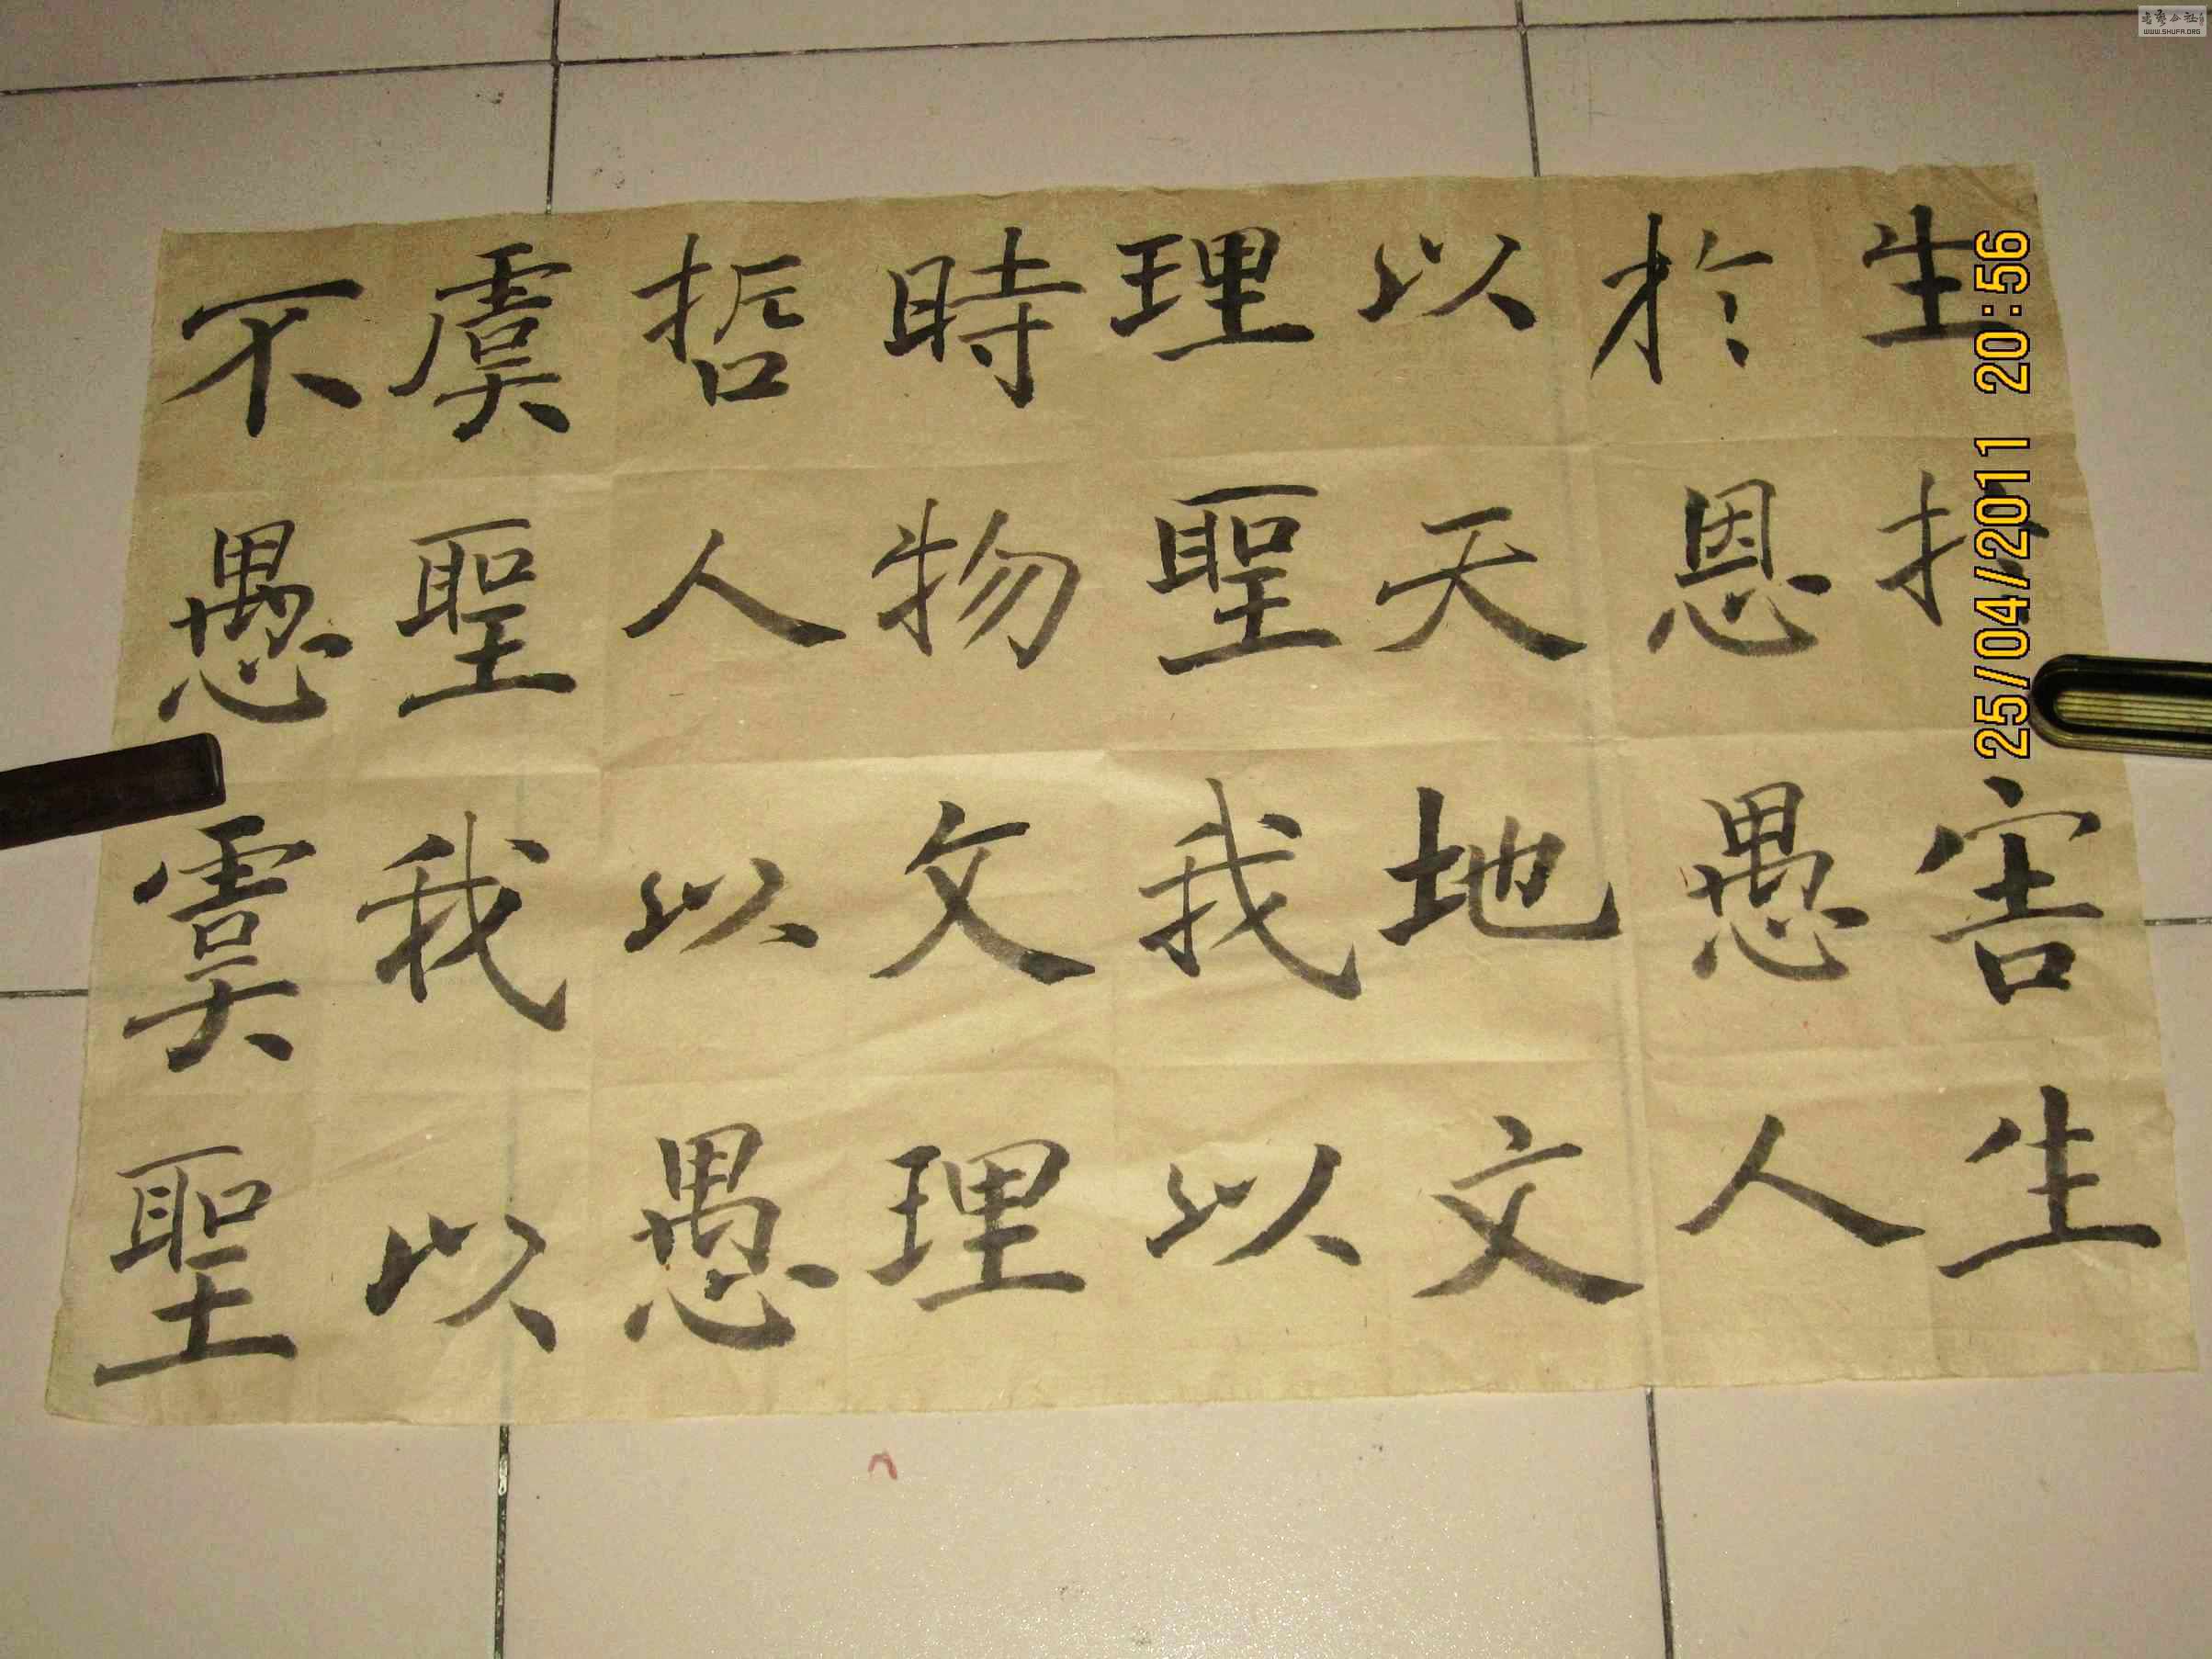 生於害生
於恩愚人
以天地文
理聖我以
時物文理
哲人以愚
虞聖我以
不愚虞聖
25/04/2011 20:56
WWW.SHUFA.ORG